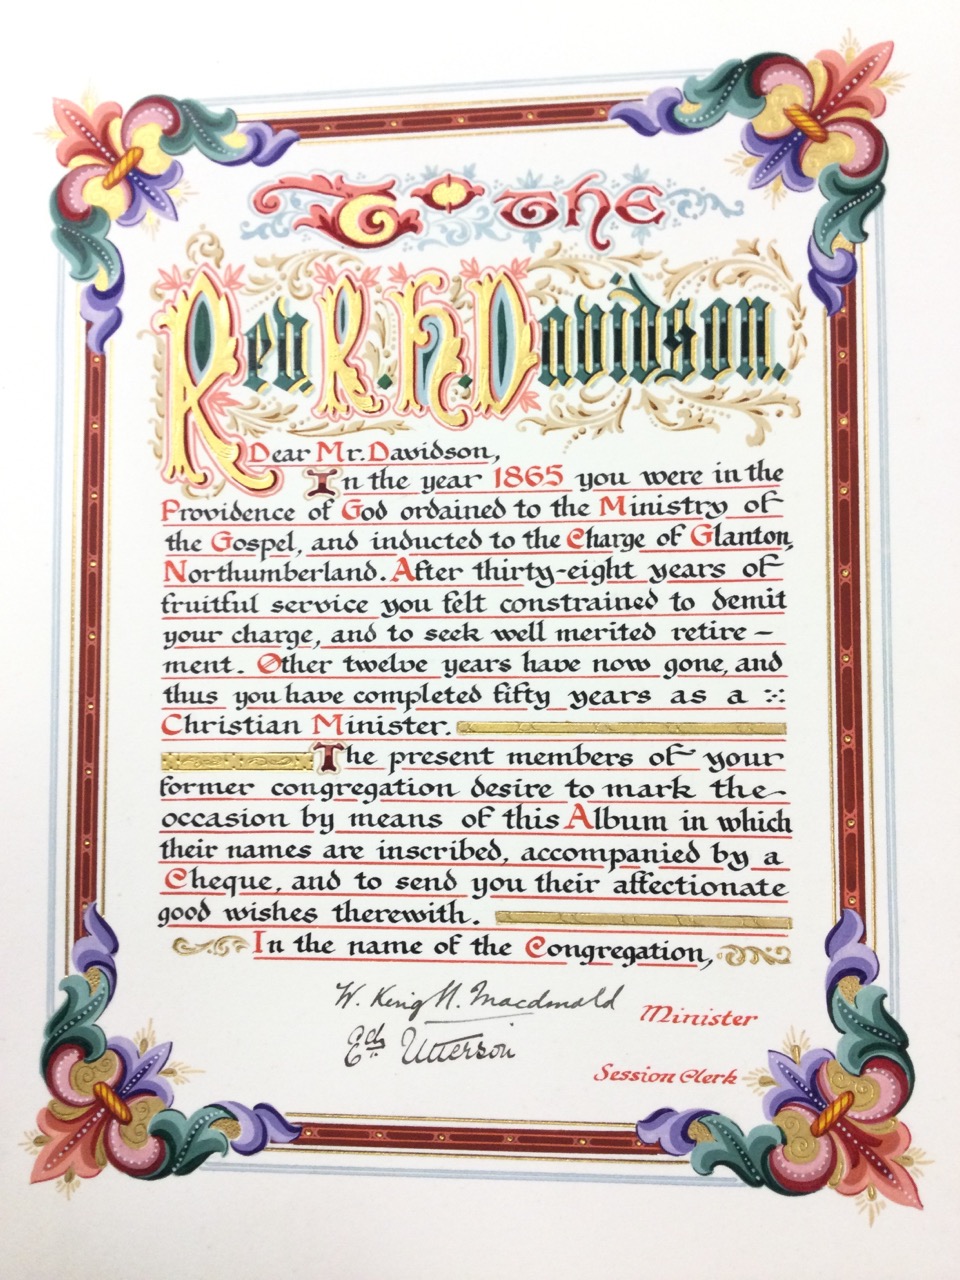 To the
Rev. R. H. Davidson.
Dear Mr. Davidson,
In the year 1865 you were in the
Providence of God ordained to the Ministry of
the Gospel, and inducted to the Charge of Glanton,
Northumberland. After thirty-eight years of
fruitful service you felt constrained to demit
your charge, and to seek well merited retire-
ment. Other twelve years have now gone, and
thus you have completed fifty years as a
Christian Minister.
The present members of your
former congregation desire to mark the
occasion by means of this Album in which
their names are inscribed, accompanied by a
Cheque, and to send you their affectionate
good wishes therewith.
In the name of the Congregation,
W. King H. Macdonald Minister
Ed. Utterson
Session Clerk